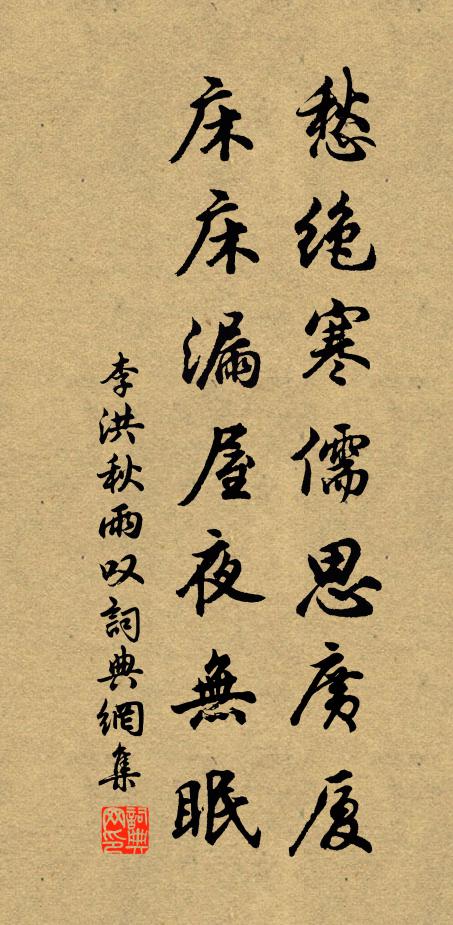 愁绝寒儒思廣厦
床床漏屋夜無眠
李洪秋雨叹詞典網集
詞典網印